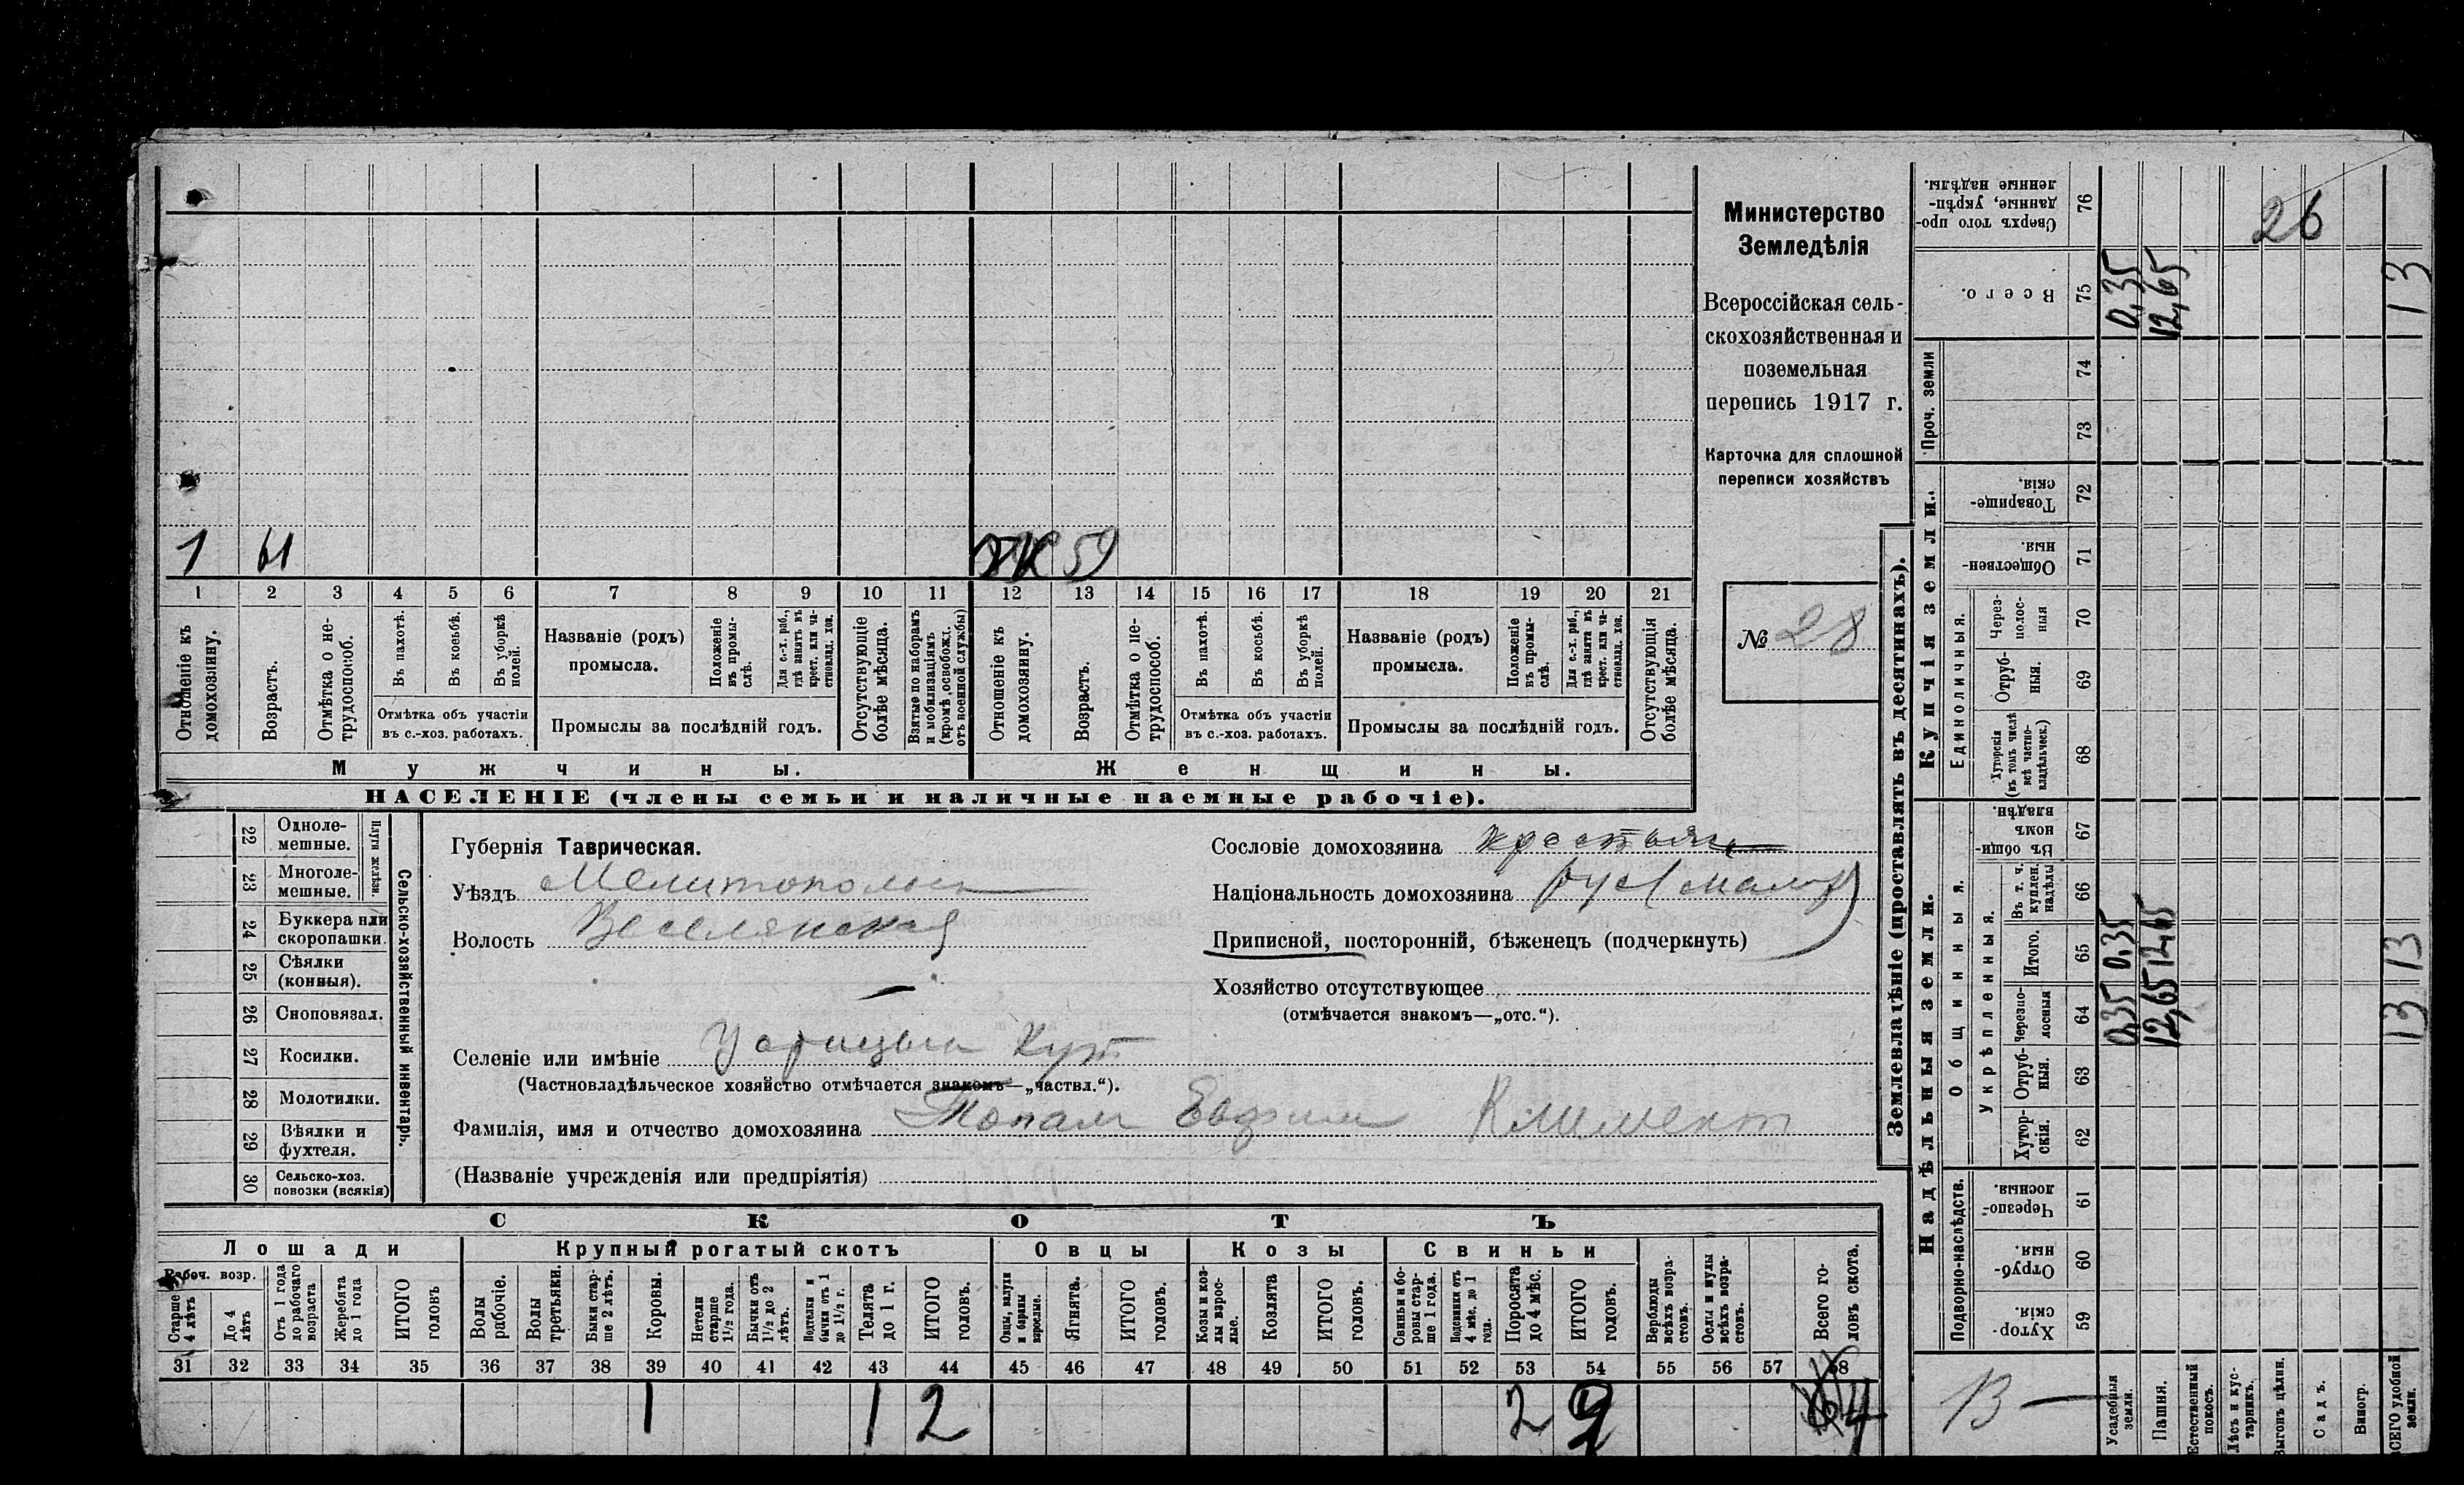 Министерство
Земледѣлія
Всероссійская сель-
скохозяйственная и
поземельная
перепись 1917 г.
Карточка для сплошной
переписи хозяйствъ
№ 28
1 61 59
1 2 3 4 5 6 7 8 9 10 11 12 13 14 15 16 17 18 19 20 21
Отношеніе къ домохозяину.
Возрастъ.
Отмѣтка о не-трудоспособ.
Въ пахотѣ.
Въ косьбѣ.
Въ уборкѣ полей.
Отмѣтка объ участіи
въ с.-хоз. работахъ.
Названіе (родъ)
промысла.
Положеніе въ промы-слѣ.
Для с.-х. раб., гдѣ занятъ въ крест. или ча-стновлад. хоз.
Промыслы за послѣдній годъ.
Отсутствующіе болѣе мѣсяца.
Взятые по наборамъ и мобилизаціямъ (кромѣ освобожд. отъ военной службы)
Отношеніе къ домохозяину.
Возрастъ.
Отмѣтка о не-трудоспособ.
Въ пахотѣ.
Въ косьбѣ.
Въ уборкѣ полей.
Отмѣтка объ участіи
въ с.-хоз. работахъ.
Названіе (родъ)
промысла.
Положеніе въ промы-слѣ.
Для с.-х. раб., гдѣ занята въ крест. или ча-стновлад. хоз.
Промыслы за послѣдній годъ.
Отсутствующія болѣе мѣсяца.
Мужчины.
Женщины.
НАСЕЛЕНІЕ (члены семьи и наличные наемные рабочіе).
22 Одноле-мешные.
23 Многоле-мешные.
Плуги желѣзн.
24 Буккера или скоропашки.
25 Сѣялки (конныя).
26 Сноповязал.
27 Косилки.
28 Молотилки.
29 Вѣялки и фухтеля.
30 Сельско-хоз. повозки (всякія)
Сельско-хозяйственный инвентарь.
Губернія Таврическая.
Уѣздъ Мелитопольск
Волость Веселянская
Селеніе или имѣніе Кут
(Частновладѣльческое хозяйство отмѣчается знакомъ—„частвл.“).
Фамилія, имя и отчество домохозяина Топал Евфим Климент
(Названіе учрежденія или предпріятія)
Сословіе домохозяина крестьян
Національность домохозяина рус (малор)
Приписной, посторонній, бѣженецъ (подчеркнуть)
Хозяйство отсутствующее
(отмѣчается знакомъ—„отс.“).
СКОТЪ
Лошади
Крупный рогатый скотъ
Овцы
Козы
Свиньи
Рабоч. возр.
Старше 4 лѣтъ
До 4 лѣтъ
Отъ 1 года до рабочаго возраста
Жеребята до 1 года
ИТОГО головъ
Волы рабочіе.
Волы третьяки.
Быки стар-ше 2 лѣтъ.
Коровы.
Нетели старше 1½ года.
Бычки отъ 1½ до 2 лѣтъ.
Подтелки и бычки отъ 1 до 1½ г.
Телята до 1 г.
ИТОГО головъ.
Овцы, валухи и бараны взрослые.
Ягнята.
ИТОГО головъ.
Козы и коз-лы взрос-лые.
Козлята
ИТОГО головъ.
Свиньи и бо-ровы стар-ше 1 года.
Подсвинки отъ 4 мѣс. до 1 года.
Поросята до 4 мѣс.
ИТОГО головъ.
Верблюды всѣхъ возра-стовъ.
Ослы и мулы всѣхъ возра-стовъ.
Всего го-ловъ скота.
31 32 33 34 35 36 37 38 39 40 41 42 43 44 45 46 47 48 49 50 51 52 53 54 55 56 57 58
1 1 2 2 2 4
Землевладѣніе (проставлять въ десятинахъ).
Надѣльныя земли.
Купчія земли.
Проч. земли
Подворно-наслѣдств.
Общинныя.
Укрѣпленныя.
Единоличныя.
59 Хутор-скія.
60 Отруб-ныя.
61 Черезпо-лосныя.
62 Хутор-скія.
63 Отруб-ныя.
64 Черезпо-лосныя
65 Итого.
66 Въ т. ч. куплен. надѣлы
67 Въ общин-номъ владѣн.
68 Хуторскія (въ томъ числѣ всѣ частно-владѣльческ.)
69 Отруб-ныя.
70 Через-полос-ныя
71 Обществен-ныя.
72 Товарище-скія.
73
74
75 Всего.
76 Сверхъ того про-данные, укрѣп-ленные надѣлы.
Усадебныя земли.
0,35 0,35 0,35
Пашня.
12,65 12,65 12,65
Естественный покосъ.
Лѣсъ и кус-тарникъ.
Выгонъ цѣлин.
Садъ.
Виногр.
ВСЕГО удобной земли.
13 13 13
26
13